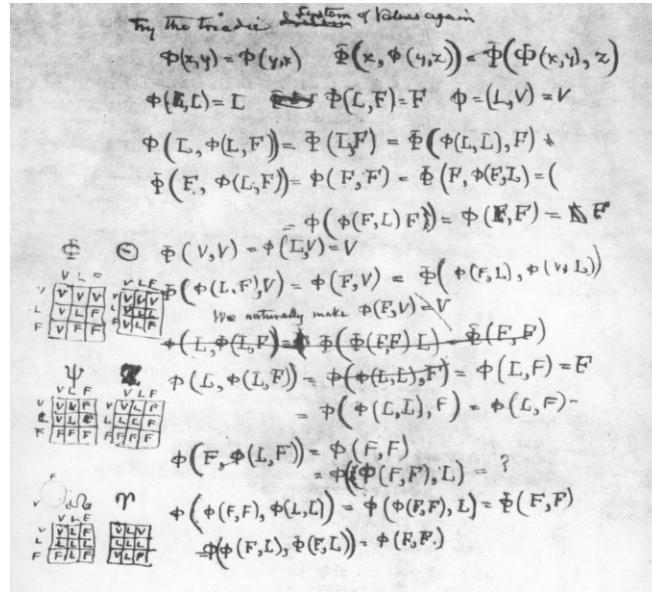 Try the triadic System of Values again
Φ(x,y) = Φ(y,x) Φ(x, Φ(y,z)) = Φ(Φ(x,y), z)
Φ(L,L) = L Φ(L,F) = F Φ=(L,V) = V
Φ(L, Φ(L,F)) = Φ(L,F) = Φ(Φ(L,L), F)
Φ(F, Φ(L,F)) = Φ(F,F) = Φ(F, Φ(F,L) = (
= Φ(Φ(F,L) F)) = Φ(F,F) = F
Φ(V,V) = Φ(L,V) = V
Φ(Φ(L,F),V) = Φ(F,V) = Φ(Φ(F,L), Φ(V,L))
We naturally make Φ(F,V) = V
Φ(L, Φ(L,F) = Φ(Φ(F,F) L) = Φ(F,F)
Φ(L, Φ(L,F)) = Φ(Φ(L,L),F) = Φ(L,F) = F
= Φ(Φ(L,L), F) = Φ(L,F) -
Φ(F, Φ(L,F)) = Φ(F,F)
= Φ(Φ(F,F), L) = ?
Φ(Φ(F,F), Φ(L,L)) = Φ(Φ(F,F), L) = Φ(F,F)
=Φ(Φ(F,L), Φ(F,L)) = Φ(F,F)
Φ Θ
V L F V L F
V V V V V V L V
L V L F L L L
F V F F F V L F
Ψ Z
V L F V L F
V V V F V V L F
L V L F L L L F
F F F F F F F F
☊ ♈
V L F
V V L F V L V
L L L L L L L
F F L F V L F